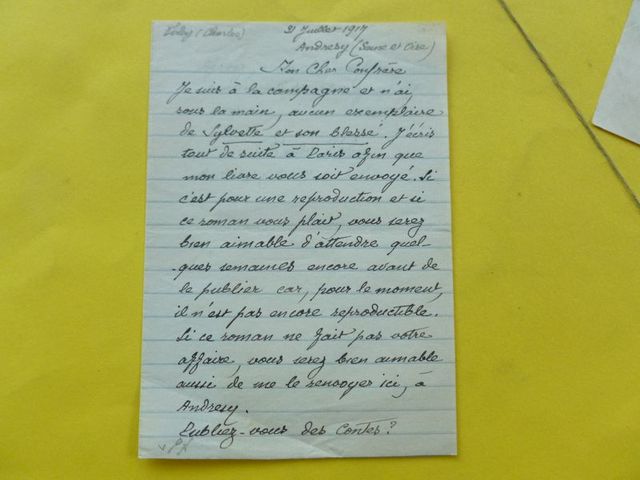 Foley (Charles)
31 Juillet 1917
Andrésy (Seine et Oise)
Mon Cher Confrère
Je suis à la campagne et n'ai,
sous la main, aucun exemplaire
de Sylvette et son blessé. J'écris
tout de suite à Paris afin que
mon livre vous soit envoyé. Si
c'est pour une reproduction et si
ce roman vous plait, vous serez
bien aimable d'attendre quel-
-ques semaines encore avant de
le publier car, pour le moment,
il n'est pas encore reproductible.
Si ce roman ne fait pas votre
affaire, vous serez bien aimable
aussi de me le renvoyer ici, à
Andrésy.
Publiez-vous des contes?